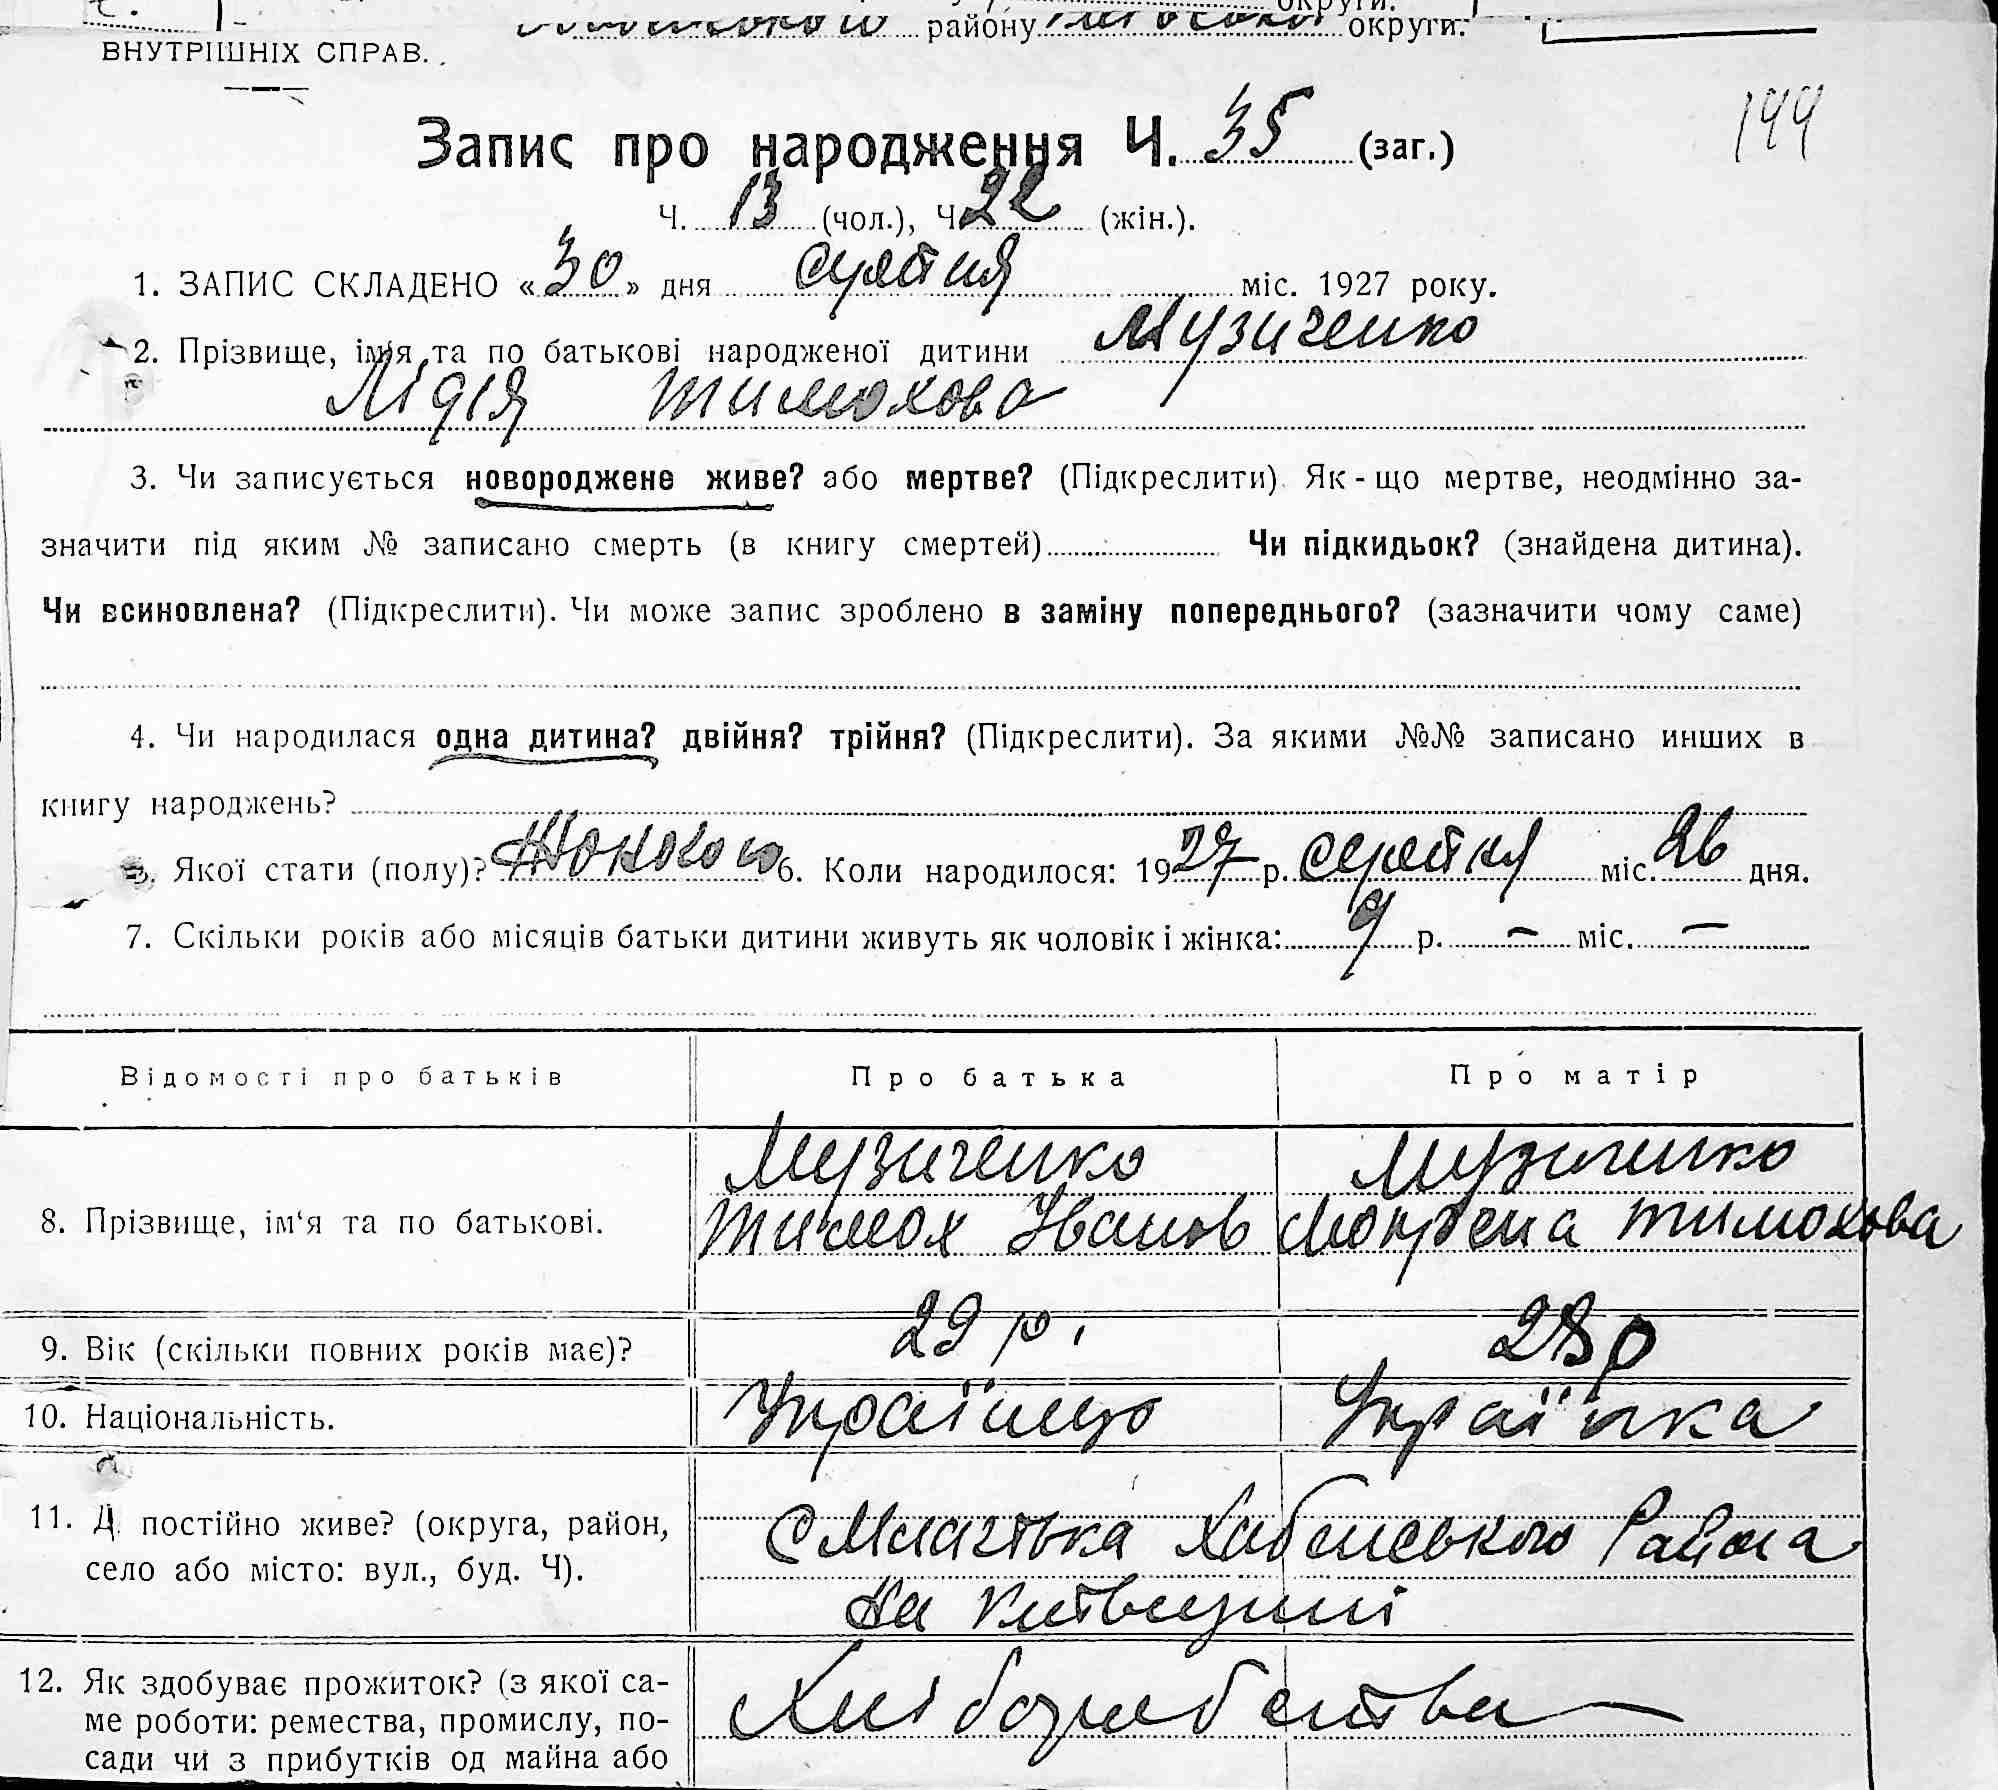 округи.
району округи.
ВНУТРІШНІХ СПРАВ.
Запис про народження Ч. 35 (заг.)
144
Ч. 13 (чол.), Ч. 22 (жін.).
1. ЗАПИС СКЛАДЕНО «30» дня серпня міс. 1927 року.
2. Прізвище, ім'я та по батькові народженої дитини Музиченко
Лідія Тимохова
3. Чи записується новороджене живе? або мертве? (Підкреслити). Як-що мертве, неодмінно за-
значити під яким № записано смерть (в книгу смертей) Чи підкидьок? (знайдена дитина).
Чи всиновлена? (Підкреслити). Чи може запис зроблено в заміну попереднього? (зазначити чому саме)
4. Чи народилася одна дитина? двійня? трійня? (Підкреслити). За якими №№ записано инших в
книгу народжень?
5. Якої стати (полу)? 6. Коли народилося: 1927 р. серпня міс. 26 дня.
7. Скільки років або місяців батьки дитини живуть як чоловік і жінка: 9 р. — міс. —
Відомості про батьків Про батька Про матір
Музиченко Музиченко
8. Прізвище, ім'я та по батькові. Тимох Іванов Мокрена Тимохова
9. Вік (скільки повних років має)? 29 р. 28 р
10. Національність. Українець Українка
11. Д постійно живе? (округа, район, С Млачівка Хабенського Района
село або місто: вул., буд. Ч). на Київщині
12. Як здобуває прожиток? (з якої са- Хліборобства
ме роботи: ремества, промислу, по-
сади чи з прибутків од майна або